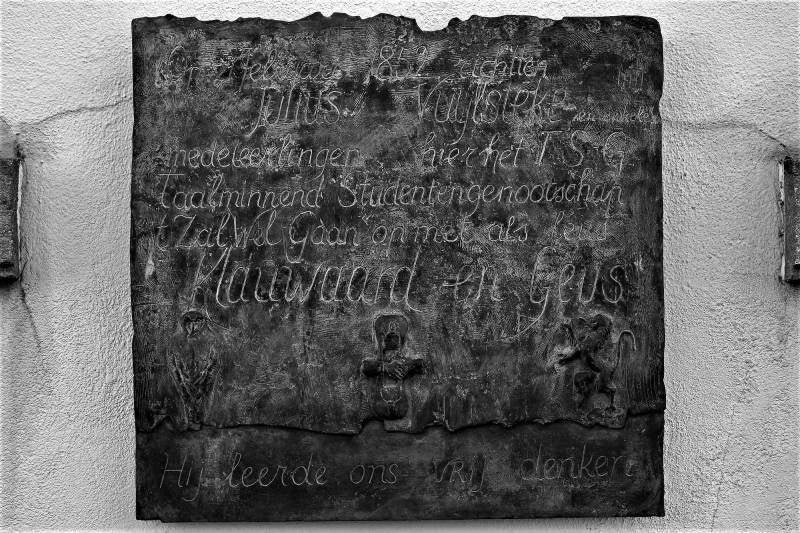 Februari 1852 richtten
Julius Vuylsteke en enkele
medeleerlingen hier het T S G
Taalminnend Studentengenootschap
't Zal Wel Gaan op met als leus
Klauwaard en Geus
Hij leerde ons vrij denken